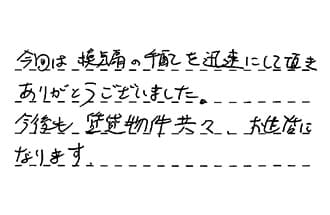 今回は換気扇の手配を迅速にして頂き
ありがとうございました。
今後も賃貸物件共々、お世話に
なります。